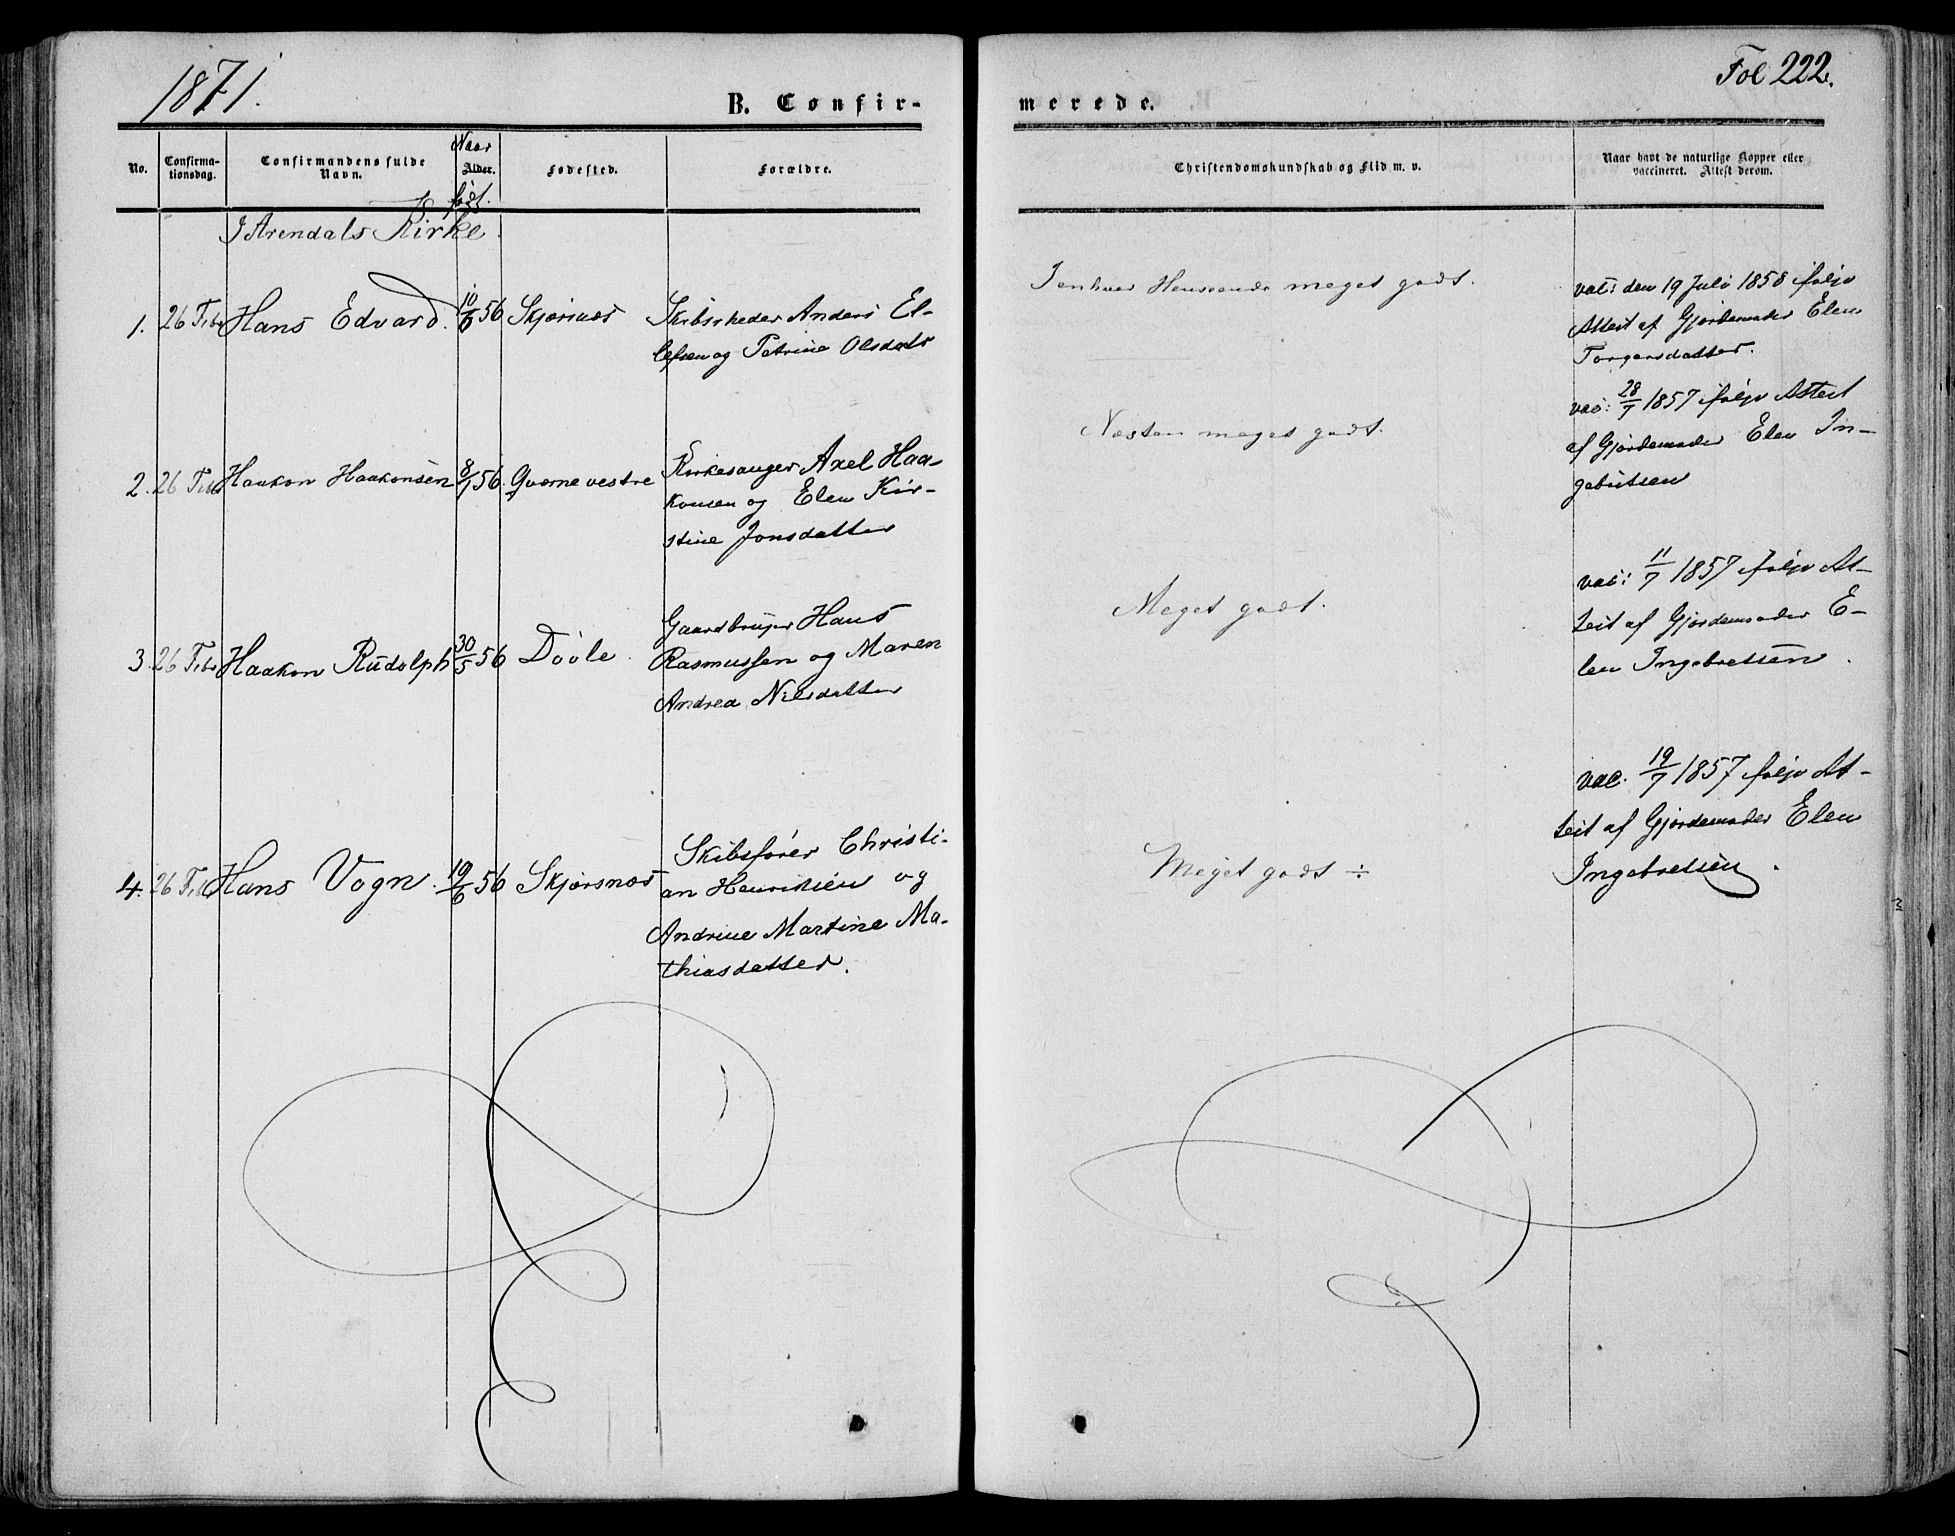 1871.
Fol 222.
B. Confir-
merede.
No.
Confirma-
tionsdag.
Confirmandens fulde
Navn.
Naar
Alder.
født.
Fødested.
Forældre.
Christendomskundskab og Flid m. v.
Naar havt de naturlige Kopper eller
vaccineret. Attest derom.
I Arendals Kirke.
1. 26 Febr Hans Edvard. 10/6 56 Skjørsnæs
Skibsrheder Anders El-
lefsen og Petrine Olsdatr
I enhver Henseende meget godt.
vac: den 19 Juli 1858 følge
Attest af Gjordemoder Elen
Torgersdatter.
2. 26 Febr Haakon Haakonsen 8/1 56. Qværne vestre
Kirkesanger Axel Haa-
konsen og Elen Kir-
stine Jonsdatter
Næsten meget godt.
vac: 28/7 1857 følge Attest
af Gjordemoder Elen In-
gebritsen
3. 26 Febr Haakon Rudolph 30/5 56 Dööle.
Gaardbruger Hans
Rasmussen og Maren
Andrea Nilsdatter
Meget godt.
vac: 11/7 1857 følge At-
test af Gjordemoder E-
len Ingebretsen.
4. 26 Feb Hans Vogn. 19/6 56 Skjørsnæs
Skibsfører Christi-
an Henriksen og
Andrine Martine Ma-
thiasdatter.
Meget godt ÷
vac. 19/7 1857 følge At-
test af Gjordemoder Elen
Ingebretsen.